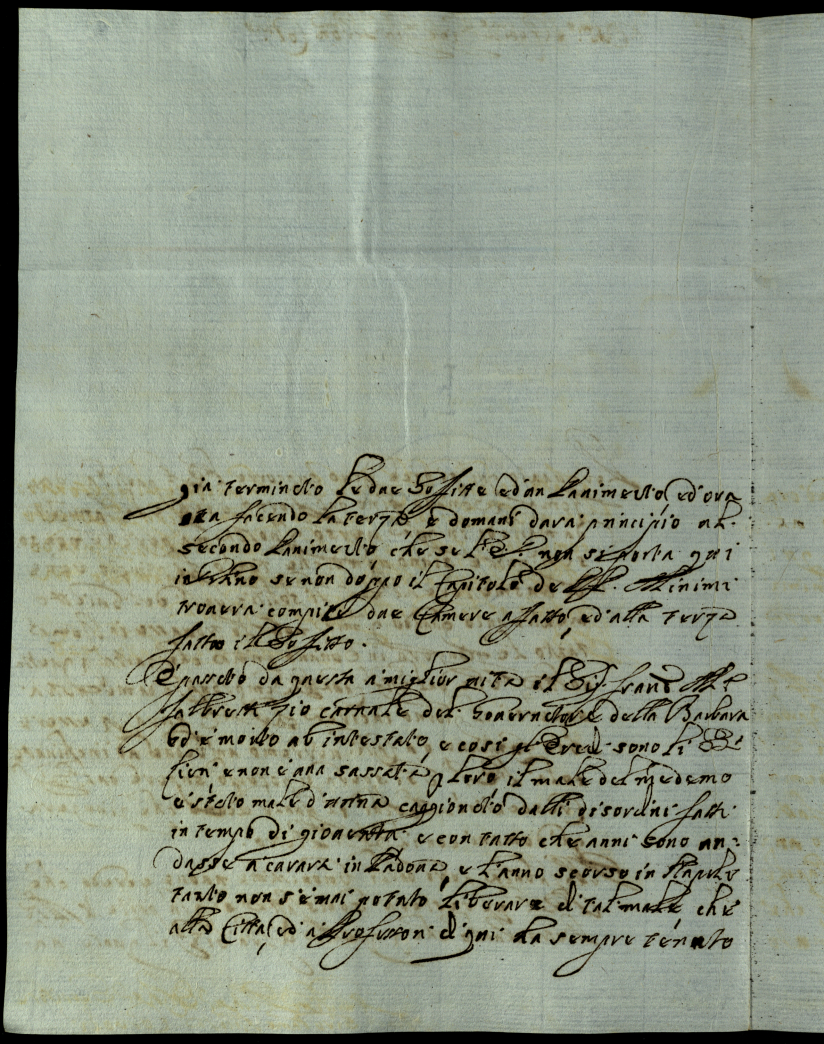 già terminato le due soffitte ed un Lanimento, ed ora
sta facendo la terza e domani darà principio al
secondo Lanimento che se non si porta qui
in Urbino se non doppo il Capitolo de PP. Minimi
trovera compite due Camere afatto, ed alla terza
fatto il Soffitto.
È passato da questa a miglior vita il Sig. Franc.
zio carnale del Governatore della Barbara
ed è morto ab intestato, e così gl'Eredi sono li
e non è una sassata loro il male del medemo
è stato male d'orina caggionato dalli disordini fatti
in tempo di gioventù e con tutto che anni sono an-
dasse a curarsi in Padova, e l'anno scorso in Napoli
tanto non s'è mai potuto liberare di tal male che
alla Città, ed a Professori di qui ha sempre tenuto